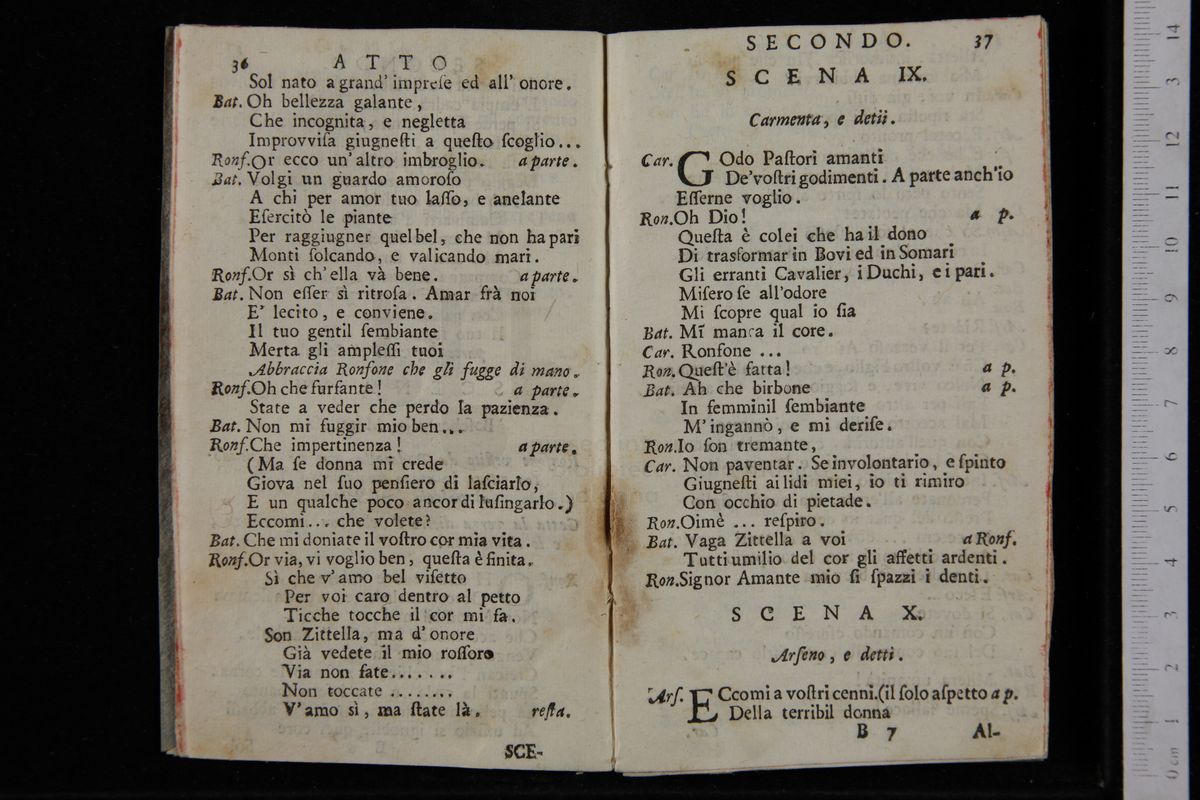 36 ATTO
Sol nato a grand' impreſe ed all' onore.
Bat. Oh bellezza galante,
Che incognita, e negletta
Improvviſa giugneſti a queſto ſcoglio...
Ronſ. Or ecco un' altro imbroglio. a parte.
Bat. Volgi un guardo amoroſo
A chi per amor tuo laſſo, e anelante
Eſercitò le piante
Per raggiugner quel bel, che non ha pari
Monti ſolcando, e valicando mari.
Ronſ. Or sì ch' ella và bene. a parte.
Bat. Non eſſer sì ritroſa. Amar frà noi
E' lecito, e conviene.
Il tuo gentil ſembiante
Merta gli ampleſſi tuoi
Abbraccia Ronſone che gli fugge di mano.
Ronſ. Oh che furfante! a parte.
State a veder che perdo la pazienza.
Bat. Non mi fuggir mio ben...
Ronſ. Che impertinenza! a parte.
(Ma ſe donna mi crede
Giova nel ſuo penſiero di laſciarlo,
E un qualche poco ancor di luſingarlo.)
Eccomi... che volete?
Bat. Che mi doniate il voſtro cor mia vita.
Ronſ. Or via, vi voglio ben, queſta è finita.
Sì che v' amo bel viſetto
Per voi caro dentro al petto
Ticche tocche il cor mi fa.
Son Zittella, ma d' onore
Già vedete il mio roſſore
Via non fate.......
Non toccate ........
V' amo sì, ma ſtate là. reſta.
SCE-
SECONDO. 37
SCENA IX.
Carmenta, e detii.
Car. GOdo Paſtori amanti
De' voſtri godimenti. A parte anch' io
Eſſerne voglio.
Ron. Oh Dio! a p.
Queſta è colei che ha il dono
Di trasformar in Bovi ed in Somari
Gli erranti Cavalier, i Duchi, e i pari.
Miſero ſe all' odore
Mi ſcopre qual io ſia
Bat. Mi manca il core.
Car. Ronfone ...
Ron. Queſt' è fatta! a p.
Bat. Ah che birbone a p.
In femminil ſembiante
M' ingannò, e mi deriſe.
Ron. Io ſon tremante,
Car. Non paventar. Se involontario, e ſpinto
Giugneſti ai lidi miei, io ti rimiro
Con occhio di pietade.
Ron. Oimè ... reſpiro.
Bat. Vaga Zittella a voi a Ronſ.
Tutti umilio del cor gli affetti ardenti.
Ron. Signor Amante mio ſi ſpazzi i denti.
SCENA X.
Arſeno, e detti.
Arſ. ECcomi a voſtri cenni. (il ſolo aſpetto a p.
Della terribil donna
B 7 Al-
0 cm 1 2 3 4 5 6 7 8 9 10 11 12 13 14